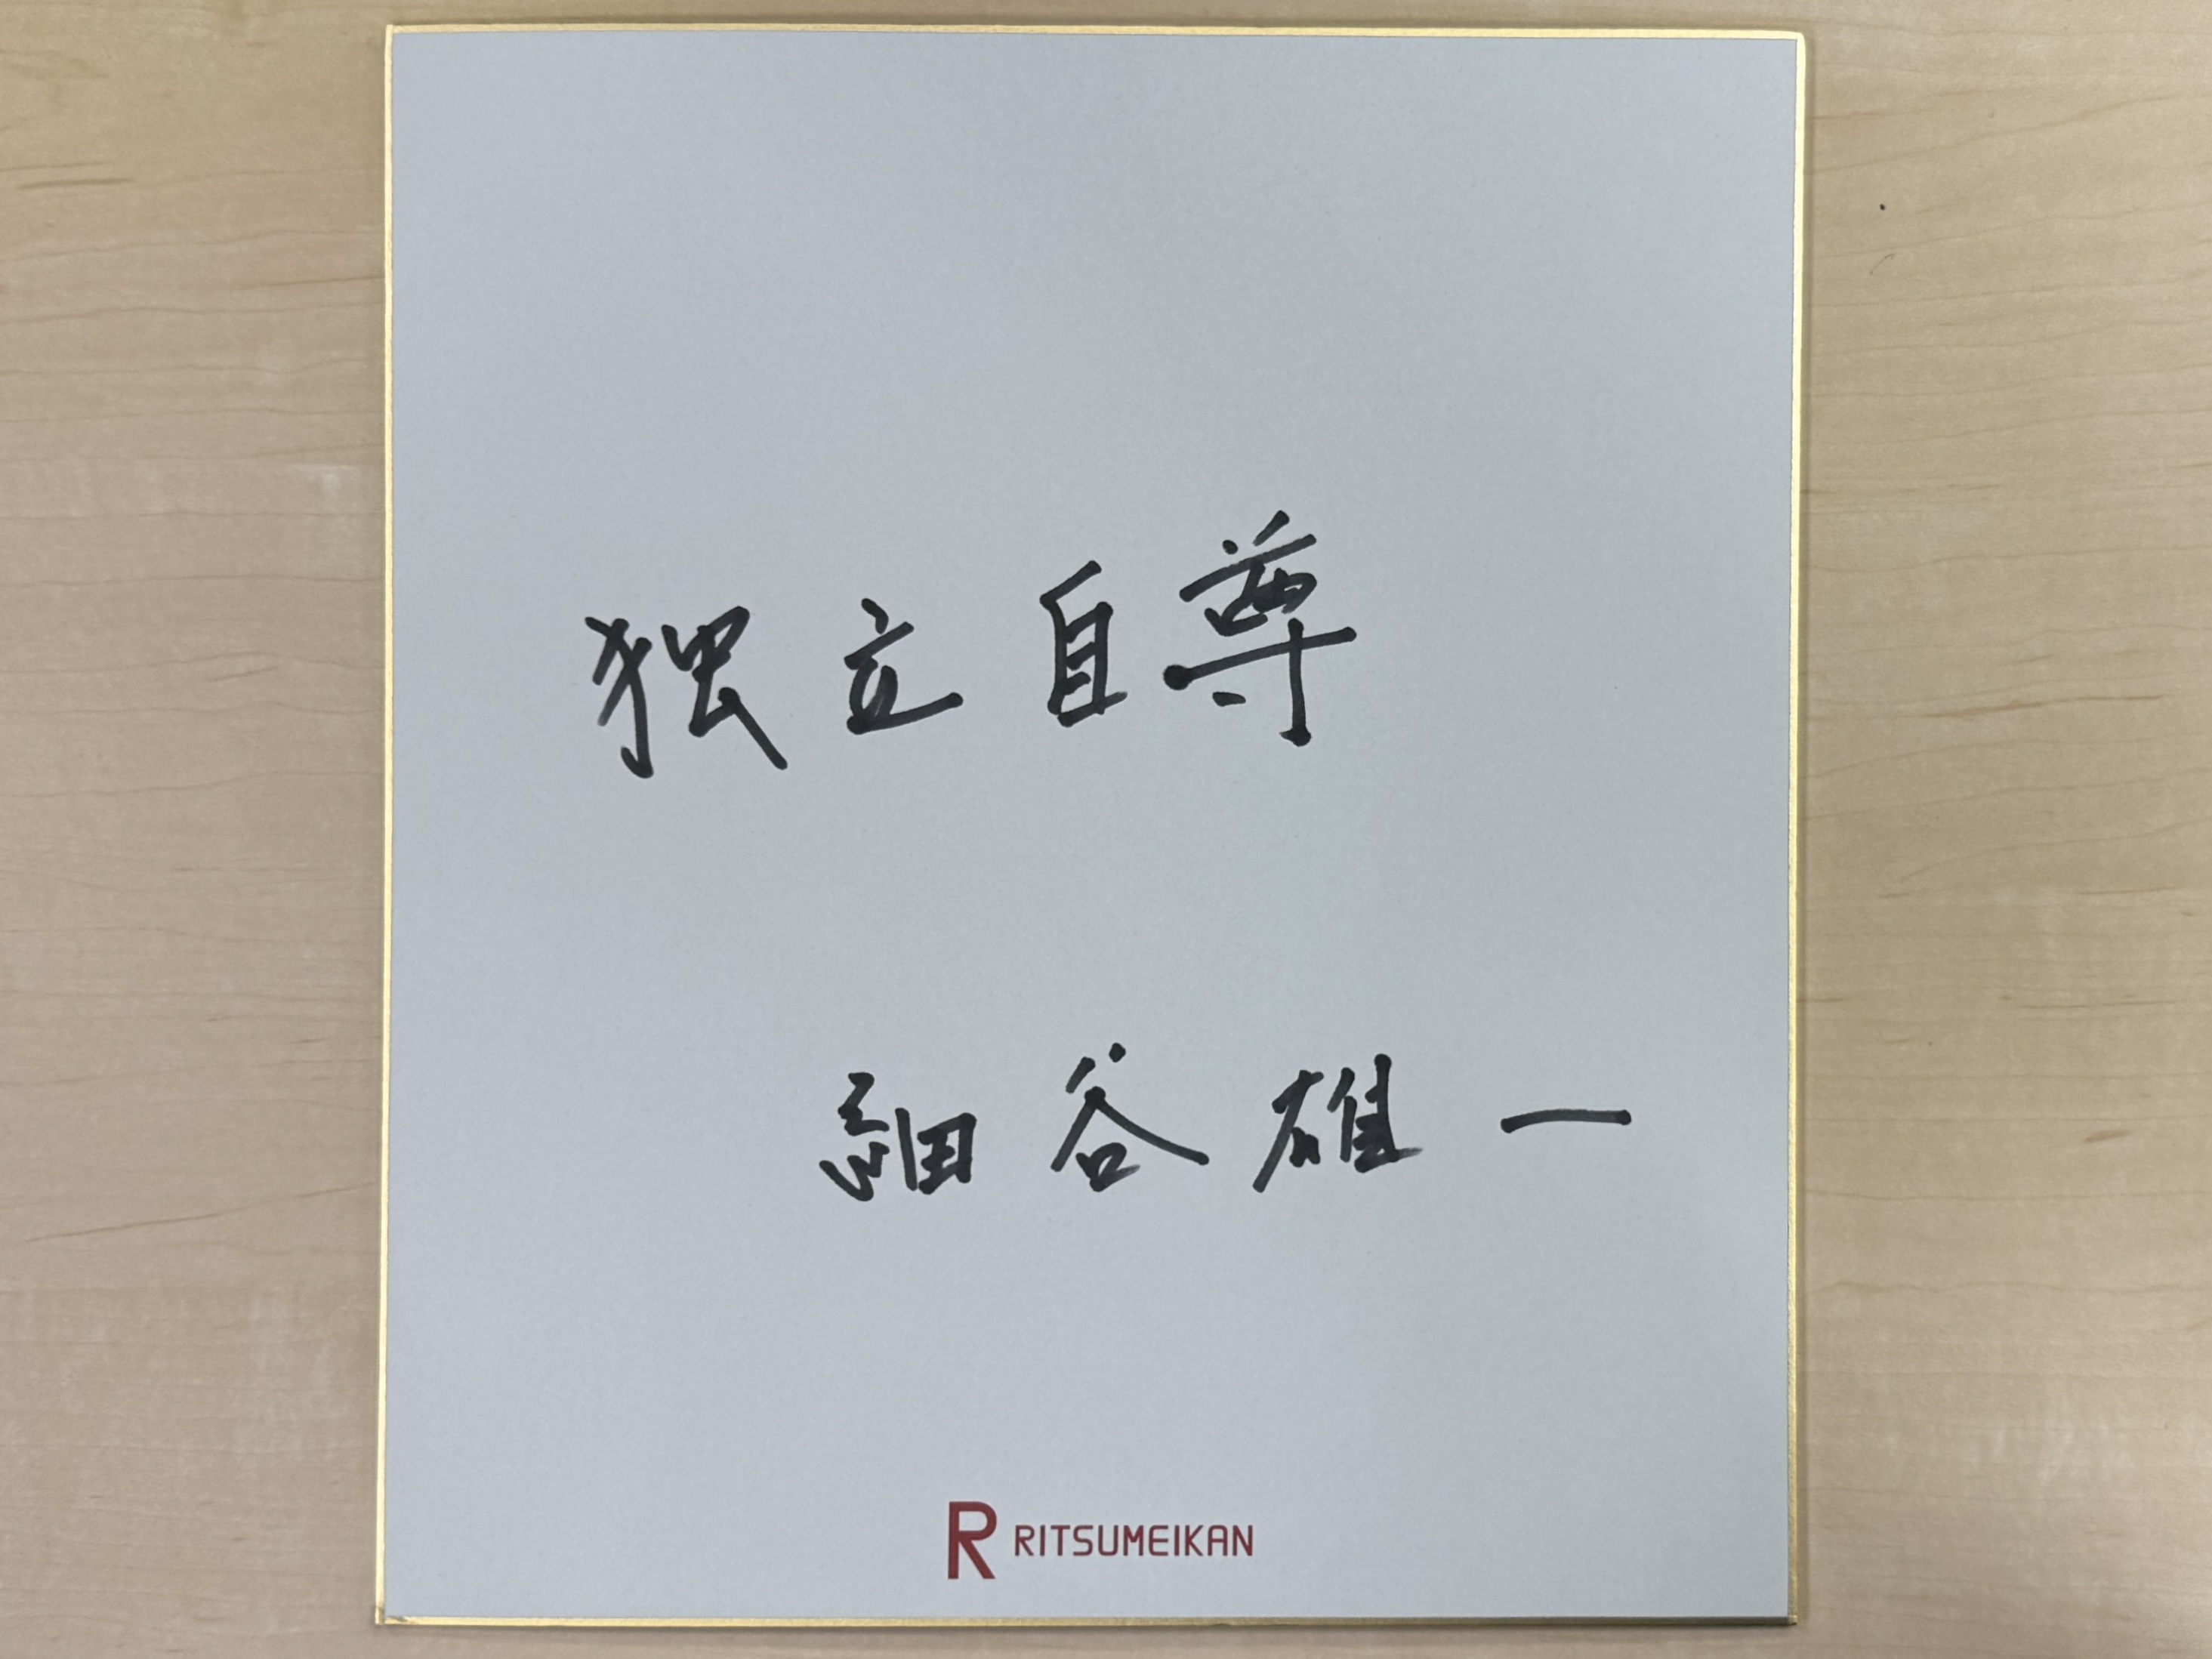 独立自尊
細谷雄一
R RITSUMEIKAN